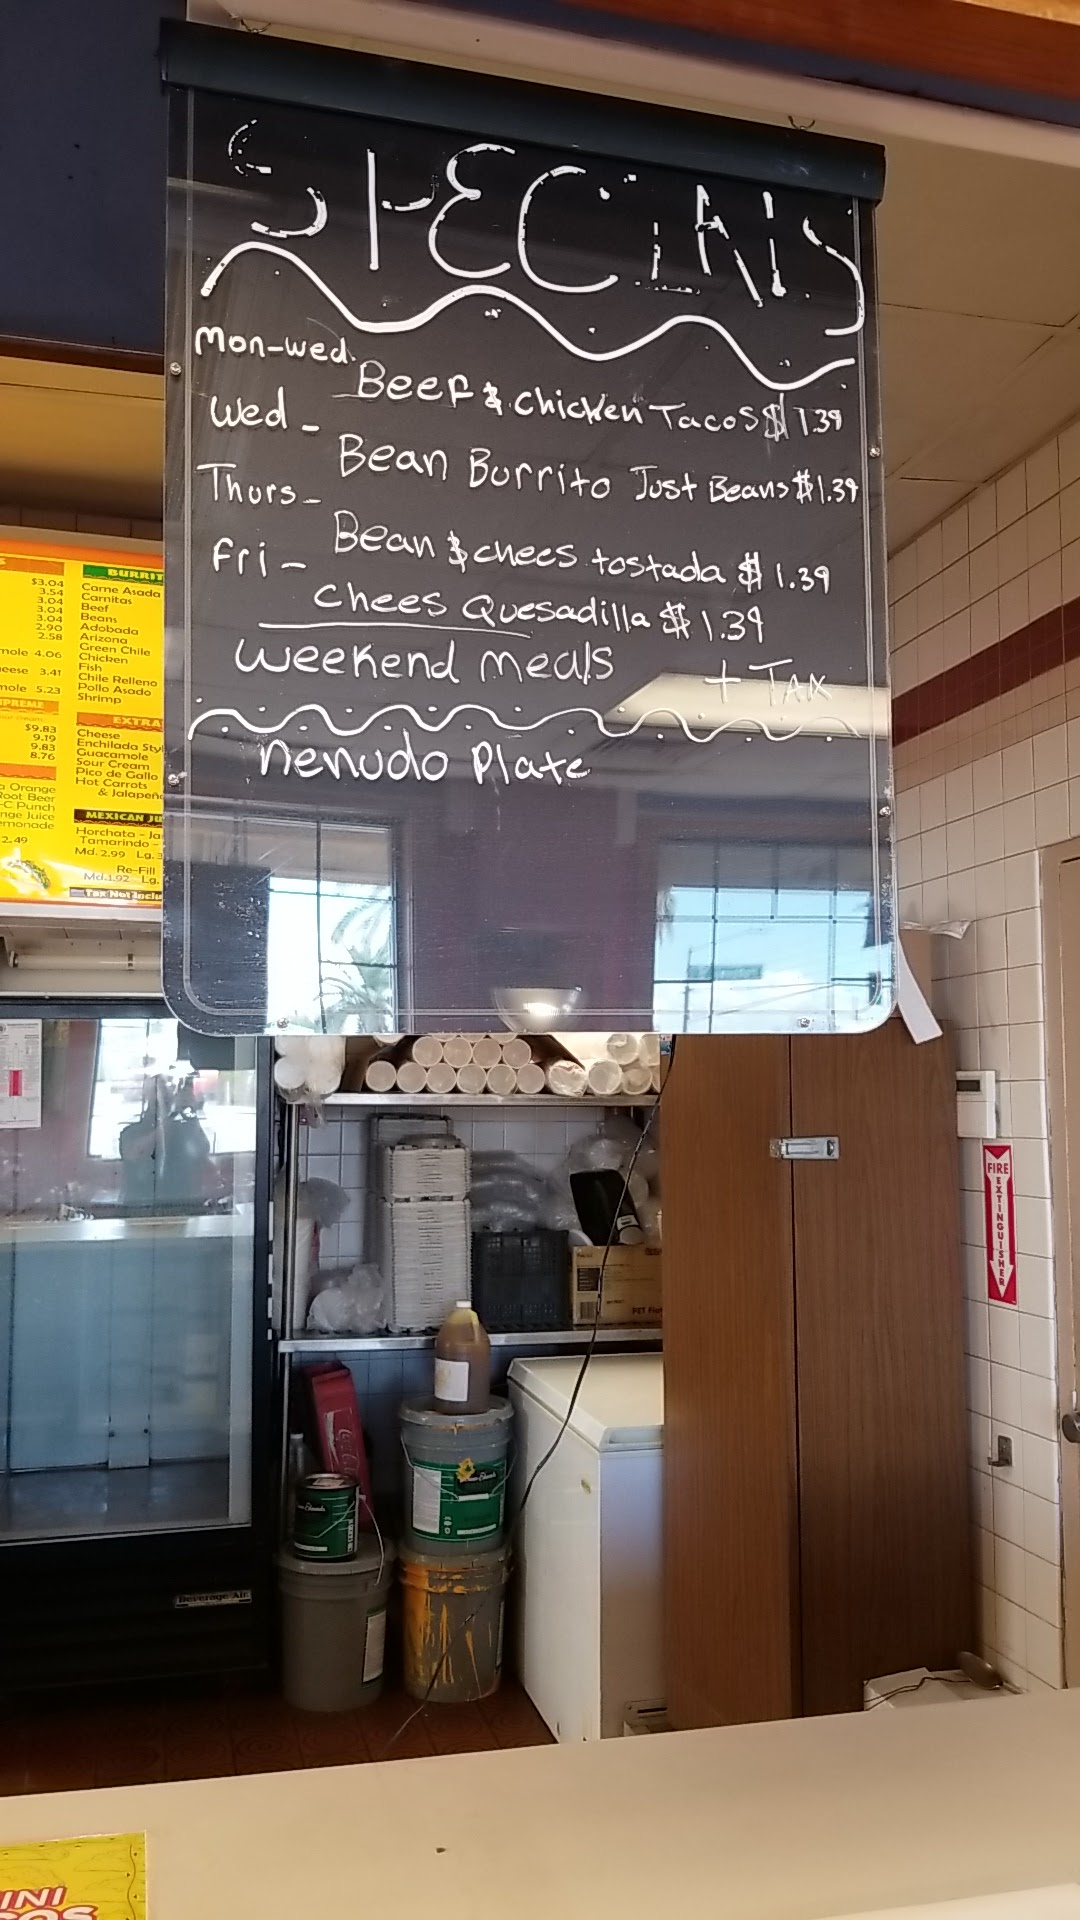 SPECIALS
Mon-Wed.
Beef & Chicken Tacos $1.39
Wed -
Bean Burrito Just Beans $1.39
Thurs -
Bean & chees tostada $1.39
Fri -
Chees Quesadilla $1.39
Weekend meals
+ TAX
nenudo Plate
$3.04
3.54
3.04
3.04
2.90
2.58
mole 4.06
eese 3.41
mole 5.23
PREME
$9.83
9.19
9.83
8.76
a Orange
Root Beer
-C Punch
nge Juice
emonade
2.49
BURRIT
Carne Asada
Carnitas
Beef
Beans
Adobada
Arizona
Green Chile
Chicken
Fish
Chile Relleno
Pollo Asado
Shrimp
EXTRA
Cheese
Enchilada Styl
Guacamole
Sour Cream
Pico de Gallo
Hot Carrots
& Jalapeñ
MEXICAN JU
Horchata - Ja
Tamarindo -
Md. 2.99 Lg. 3
Re-Fill
Md.1.92 Lg.
Tax Not Inclu
FIRE
EXTINGUISHER
Beverage-Air
INI
COS